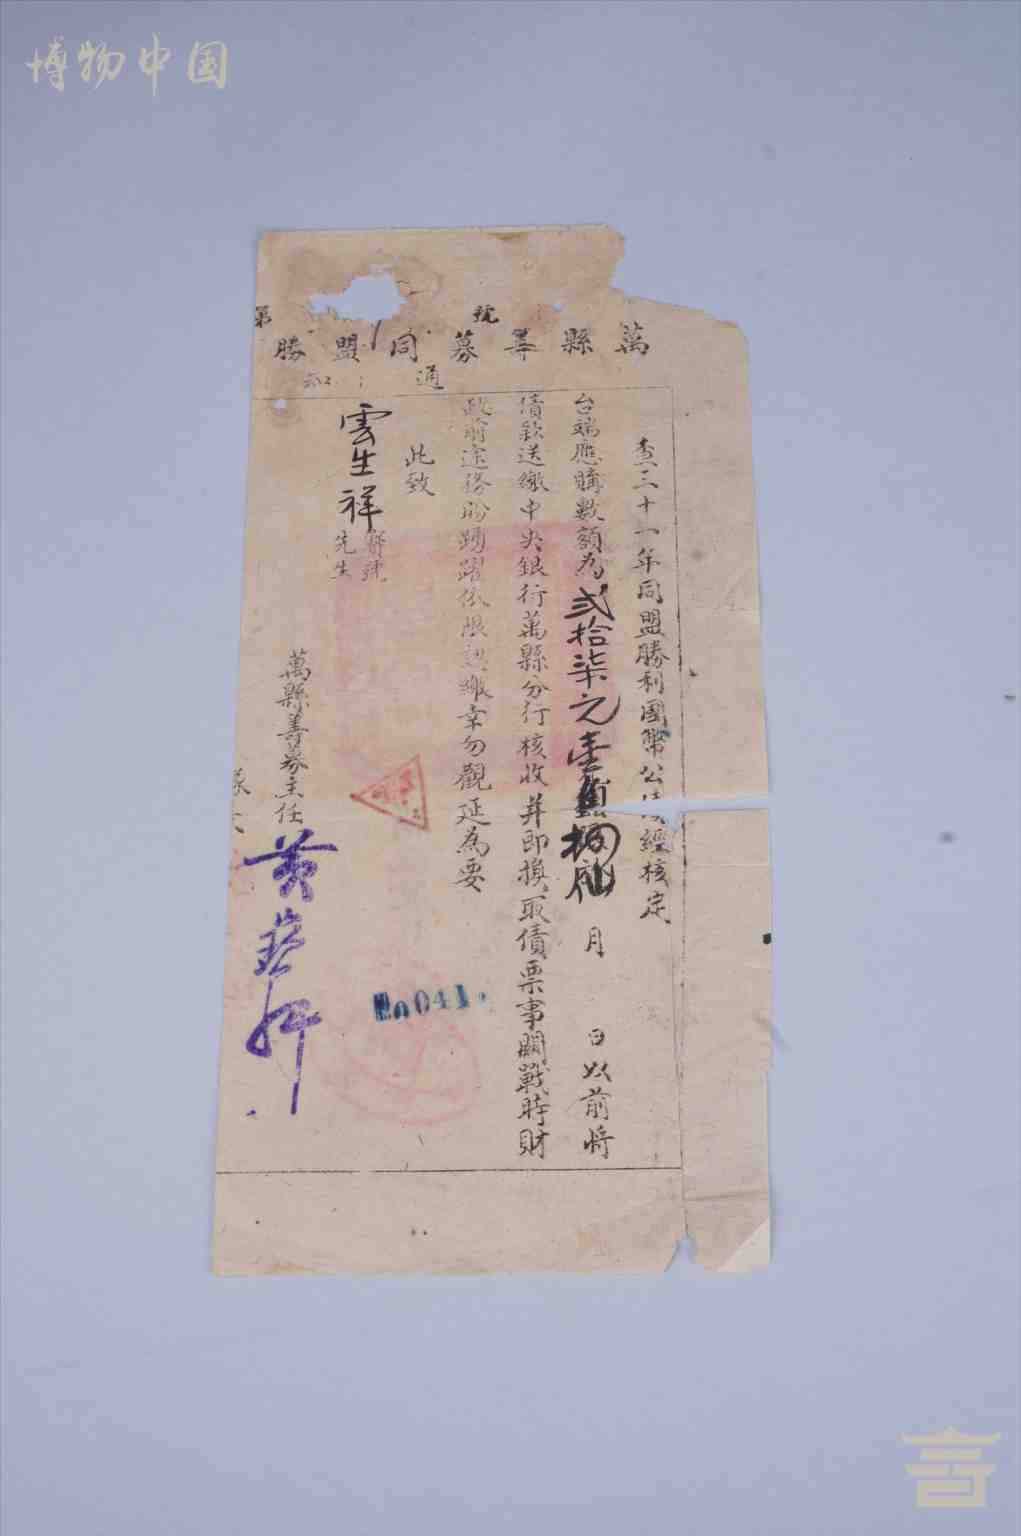 博物中国
第 號
萬縣籌募同盟勝
通知
查三十一年同盟勝利國幣公債經核定
台端應購數額為貳拾柒元壹 月 日以前將
債款送繳中央銀行萬縣分行核收并即換取債票事關戰時財
政前途務盼踴躍依限認繳幸勿觀延為要
此致
雲生祥
寶號
先生
萬縣籌募主任
黄
No 041